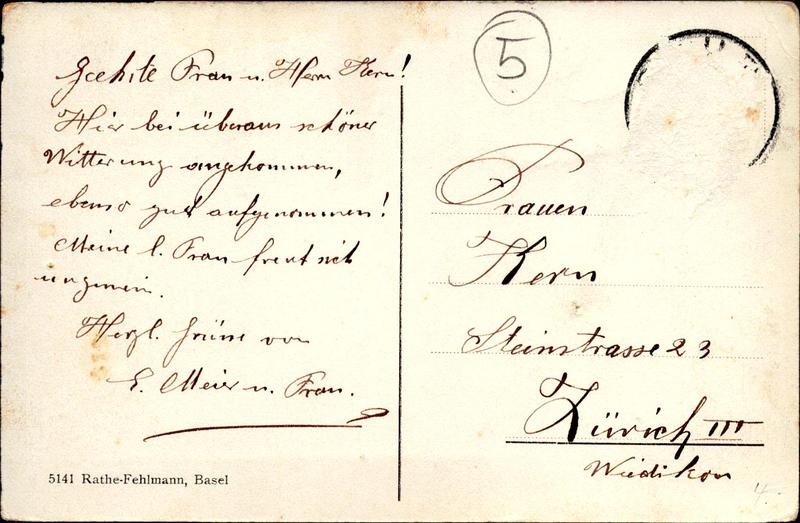 Geehrte Frau u. Herrn Kern!
Hier bei überaus schöner
Witterung angekommen,
ebenso gut aufgenommen!
Meine l. Frau freut sich
ungemein.
Herzl. Grüsse von
E. Meier u. Frau.
5141 Rathe-Fehlmann, Basel
5
Kern
Steinstrasse 23
Zürich III
Wiedikon
4.-